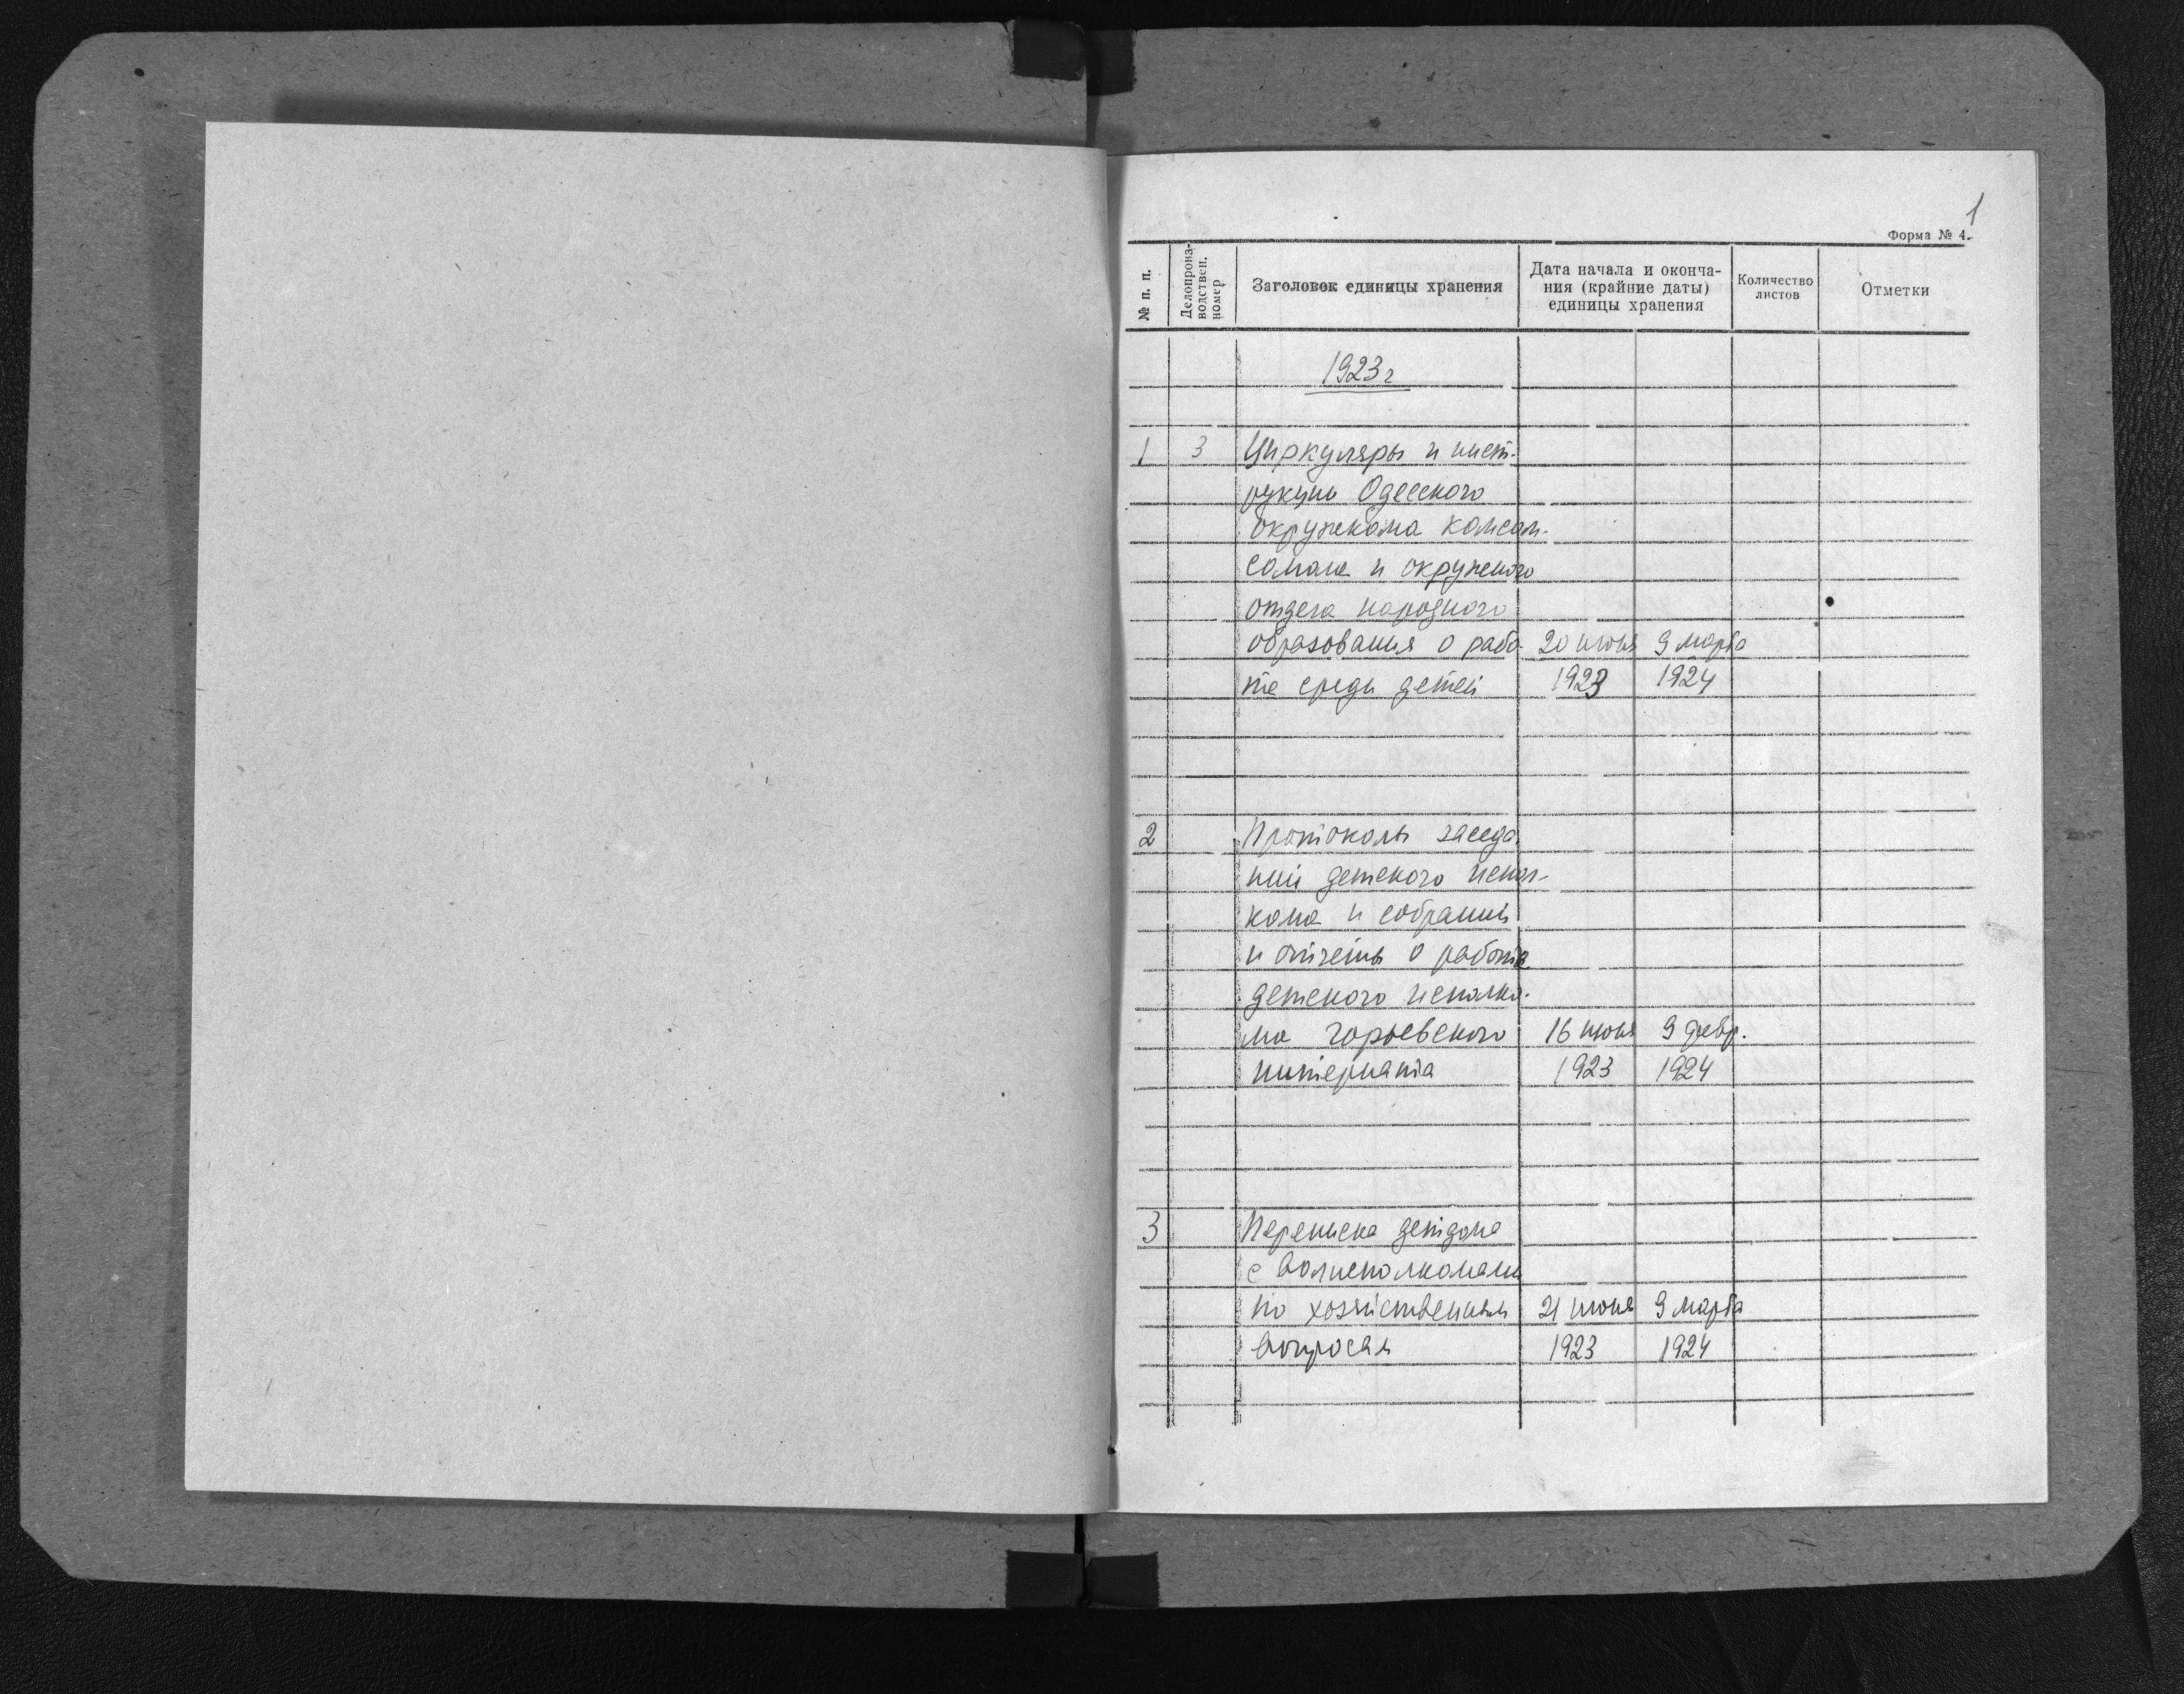 1
Форма № 4.
№ п. п.
Делопроиз-
водствен.
номер
Заголовок единицы хранения
Дата начала и оконча-
ния (крайние даты)
единицы хранения
Количество
листов
Отметки
1923 г
1 3 Циркуляры и инст-
рукции Одесского
окружкома комсом-
сомола и окружного
отдела народного
образования о рабо- 20 июня 9 марта
те среди детей 1923 1924
2 Протоколы заседа-
ний детского испол-
кома и собраний
и отчеты о работе
детского исполко-
ма 16 июня 9 февр.
интерната 1923 1924
3 Переписка детдома
с волисполкомами
по хозяйственным 21 июня 9 марта
вопросам 1923 1924